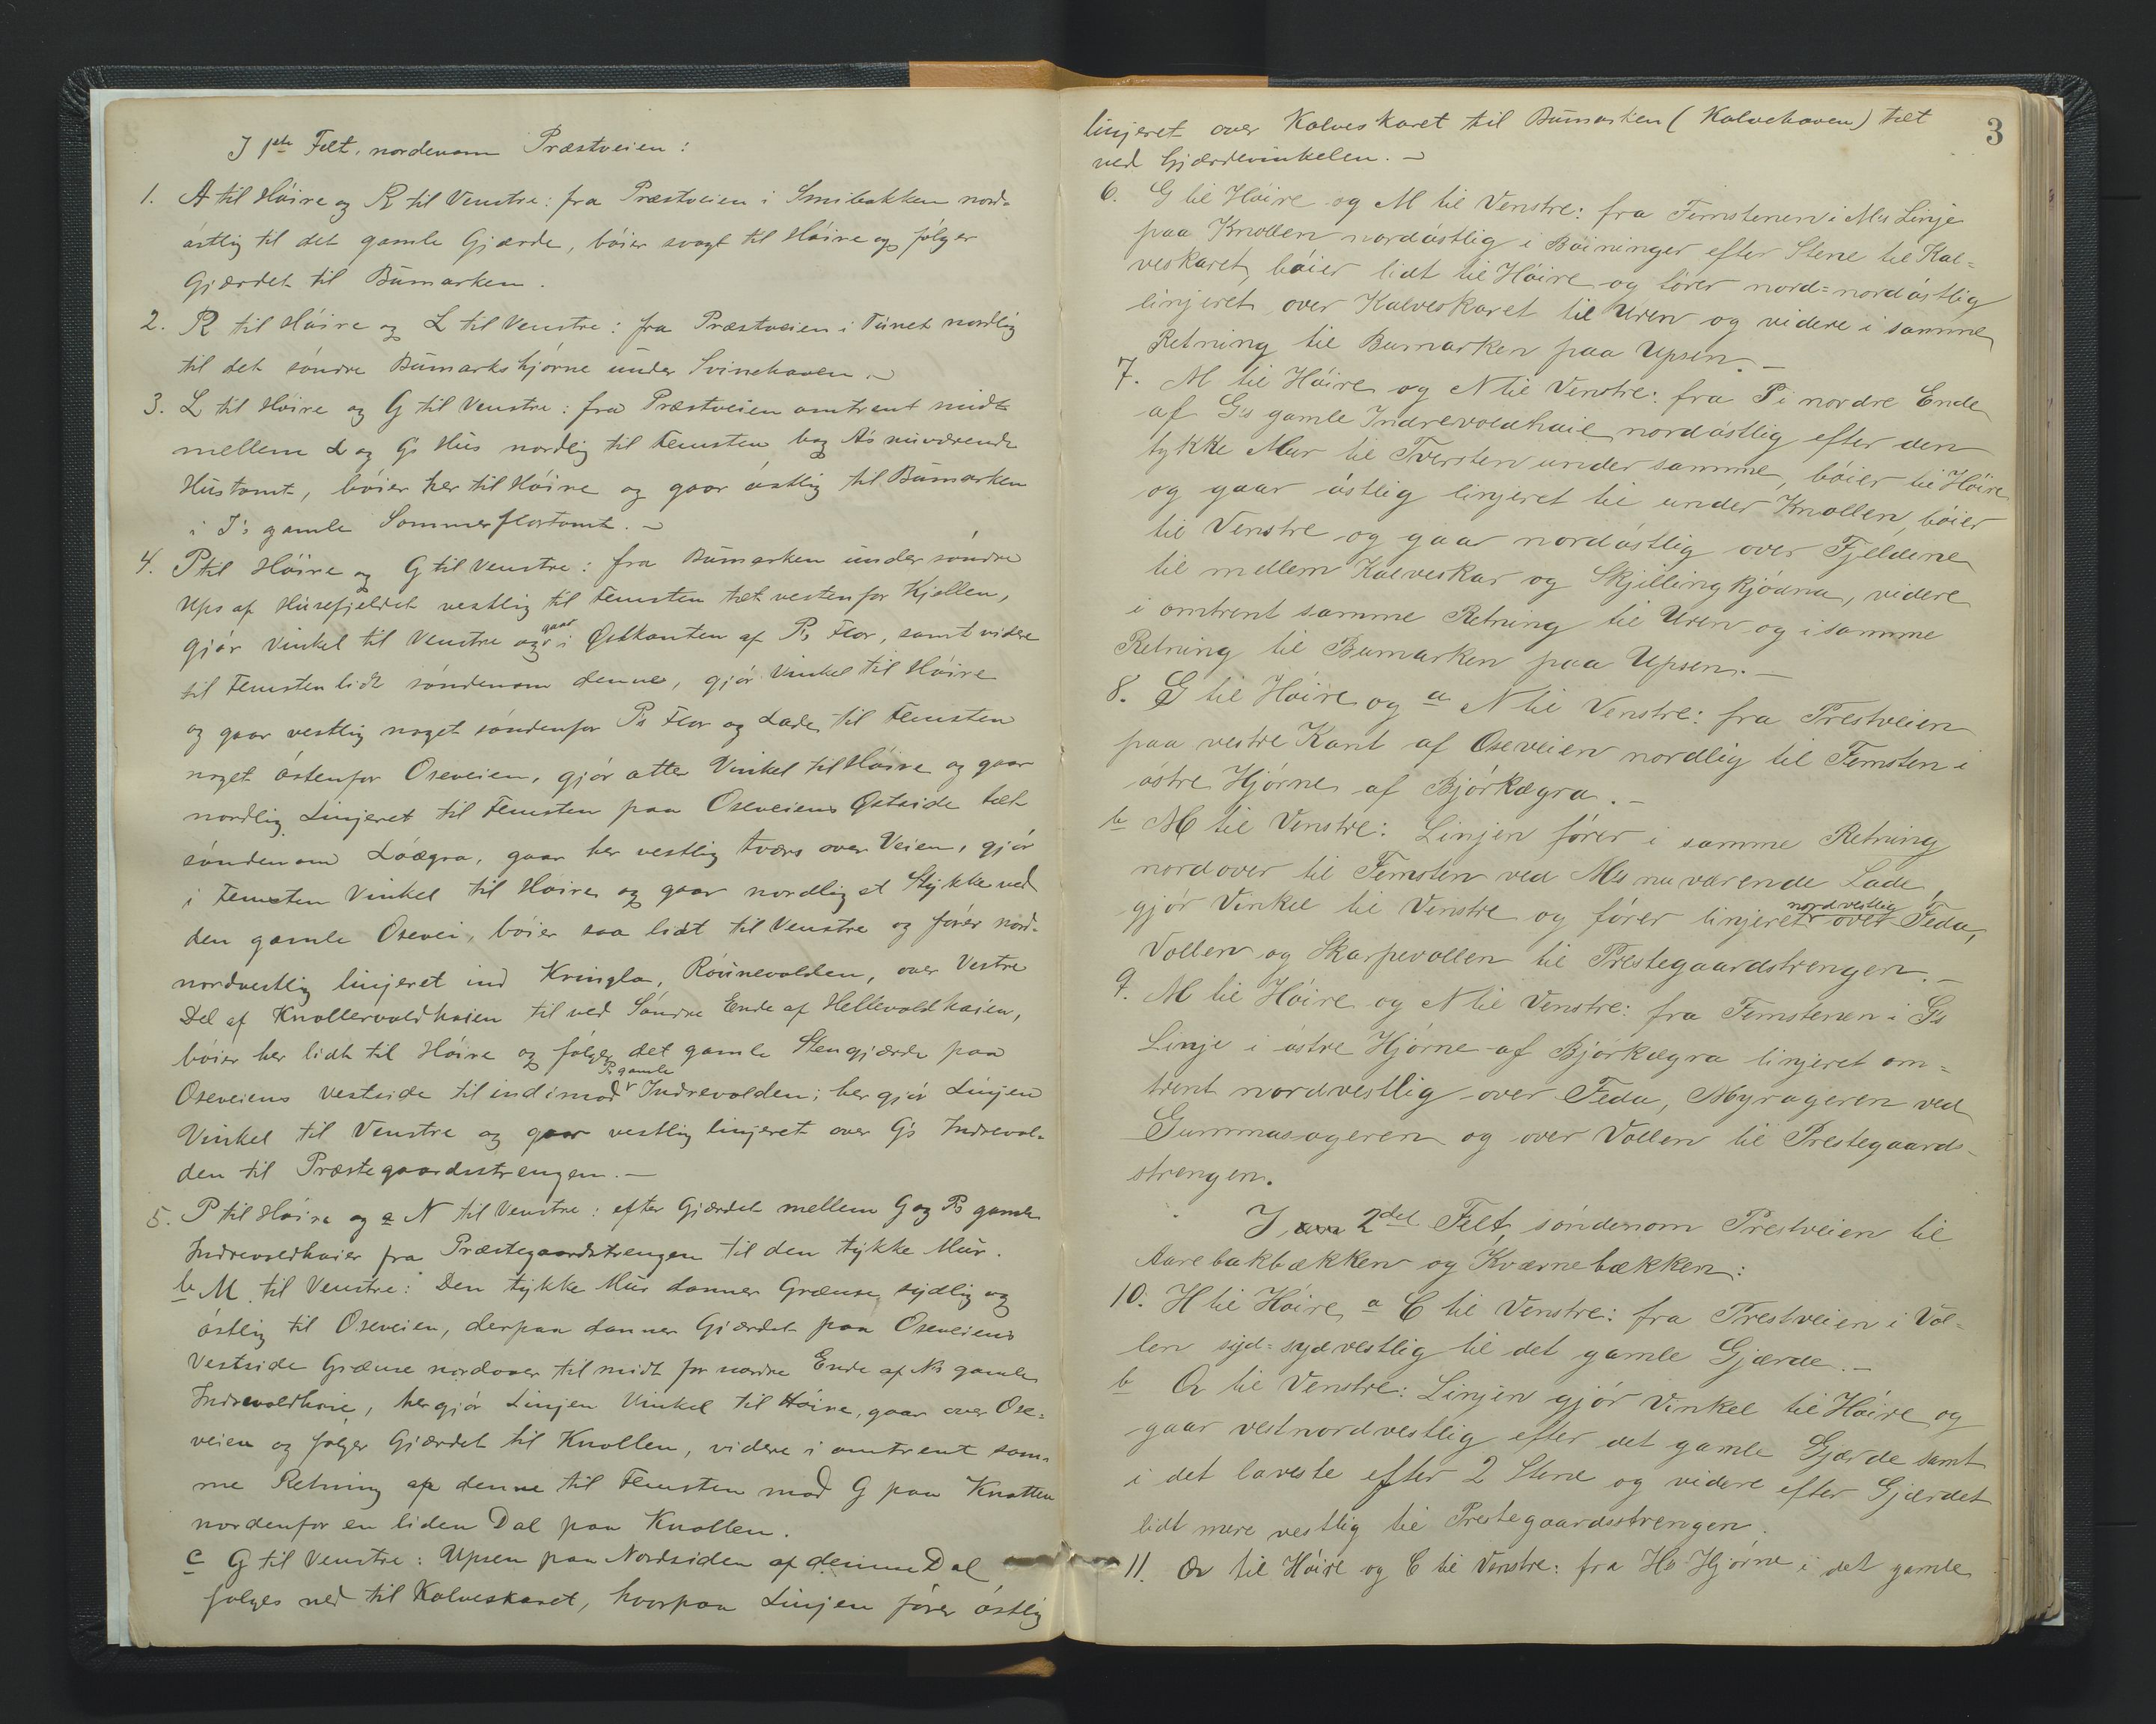 I 1ste Felt, nordenom Præstveien:
1. A til Høire og R til Venstre: fra Præstveien i Smibakken nord-
østlig til det gamle Gjærde, bøier svagt til Høire og følger
Gjærdet til Bumarken.
2. R til Høire og L til Venstre: fra Præstveien i Tunet nordlig
til det søndre Bumarkshjørne under Svinehaven.
3. L til Høire og G til Venstre: fra Præstveien omtrent midt
mellem L og G's Hus nordlig til Temsten bag A's nuværende
Hustomt, bøier her til Høire og gaar østlig til Bumarken
i I's gamle Sommerflortomt.
4. P til Høire og G til Venstre: fra Bumarken under søndre
Ups af Husefjeldet vestlig til Temsten tæt vestenfor Kjellen,
gjør Vinkel til Venstre og gaar i Østkanten af Ps Flor, samt videre
til Temsten lidt søndenom denne, gjør Vinkel til Høire
og gaar vestlig noget søndenfor Ps Flor og Lade til Temsten
noget østenfor Oseveien, gjør atter Vinkel til Høire og gaar
nordlig Linjeret til Temsten paa Oseveiens Østside tæt
søndenom Løægra, gaar her vestlig tvørs over Veien, gjør
i Temsten Vinkel til Høire og gaar nordlig et Stykke ved
den gamle Osevei, bøier saa lidt til Venstre og fører nord-
nordvestlig linjeret ind Kringla, Røunevolden, over Vestre
Del af Knollervoldhaien til ved Søndre Ende af Hellevoldhaien,
bøier her lidt til Høire og følger det gamle Stengjærde paa
Oseveiens Vestside til ind imod Ps gamle Indrevolden; her gjør Linjen
Vinkel til Venstre og gaar vestlig linjeret over G's Indrevol-
den til Præstegaardsstrengen.
5. P til Høire og a N til Venstre: efter Gjærdet mellem G og Ps gamle
Indrevoldhaier fra Præstegaardstrengen til den tykke Mur.
b M til Venstre: Den tykke Mur danner Grænse sydlig og
østlig til Oseveien, derpaa danner Gjærdet paa Oseveiens
Vestside Grænse nordover til midt for nordre Ende af Ns gamle
Indrevoldhaie, her gjør Linjen Vinkel til Høire, gaar over Ose-
veien og følger Gjærdet til Knollen, videre i omtrent sam-
me Retning af denne til Temsten mod G paa Knatten
nordenfor en liden Dal paa Knollen.
c G til Venstre: Upsen paa Nordsiden af denne Dal
følges ned til Kalveskaret, hvorpaa Linjen fører østlig
3
linjeret over Kalveskaret til Bumarken (Kalvehaven) tæt
ved Gjærdevinkelen.
6. G til Høire og M til Venstre: fra Temstenen i Ms Linje
paa Knollen nordøstlig i Bøininger efter Stene til Kal-
veskaret, bøier lidt til Høire og fører nord-nordøstlig
linjeret over Kalveskaret til Uren og videre i samme
Retning til Bumarken paa Upsen.
7. M til Høire og N til Venstre: fra P i nordre Ende
af G's gamle Indrevoldhaie nordøstlig efter den
tykke Mur til Tversten under samme, bøier til Høire
og gaar østlig linjeret til under Knollen, bøier
til Venstre og gaar nordøstlig over Fjeldene
til mellem Kalveskar og Skjillingkjødna, videre
i omtrent samme Retning til Uren og i samme
Retning til Bumarken paa Upsen.
8. G til Høire og a N til Venstre: fra Prestveien
paa vestre Kant af Oseveien nordlig til Temsten i
østre Hjørne af Bjørkægra.
b M til Venstre: Linjen fører i samme Retning
nordover til Temsten ved Ms nuværende Lade,
gjør Vinkel til Venstre og fører linjeret nordvestlig over Feda,
Vollen og Skarpevollen til Prestegaardstrengen.
9. M til Høire og N til Venstre: fra Temstenen i G's
Linje i østre Hjørne af Bjørkægra linjeret om-
trent nordvestlig over Feda, Myrageren ved
Gummasageren og over Vollen til Prestegaards-
strengen.
I 2det Felt, søndenom Prestveien til
Aarebakbækken og Kværnebækken:
10. H til Høire, a C til Venstre: fra Prestveien i Vol-
len syd-sydvestlig til det gamle Gjærde.
b Q til Venstre: Linjen gjør Vinkel til Høire og
gaar vestnordvestlig efter det gamle Gjærde samt
i det laveste efter 2 Stene og videre efter Gjærdet
lidt mere vestlig til Prestegaardsstrengen.
11. Q til Høire og C til Venstre: fra Hs Hjørne i det gamle